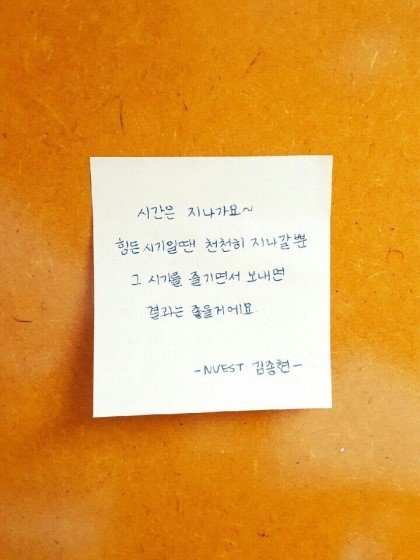 시간은 지나가요~
힘든 시기일땐 천천히 지나갈뿐
그 시기를 즐기면서 보내면
결과는 좋을거에요.
-NUEST 김종현-